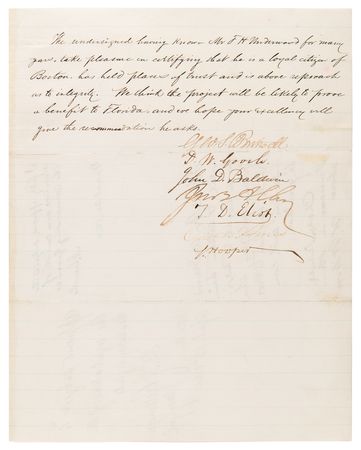 The undersigned having known Mr F H Underwood for many
years, take pleasure in certifying that he is a loyal citizen of
Boston, has held places of trust and is above reproach
as to integrity. We think the project will be likely to prove
a benefit to Florida and we hope your excellency will
give the recommendation he asks.
D. W. Gooch
John D. Baldwin
T. D. Eliot
S. Hooper